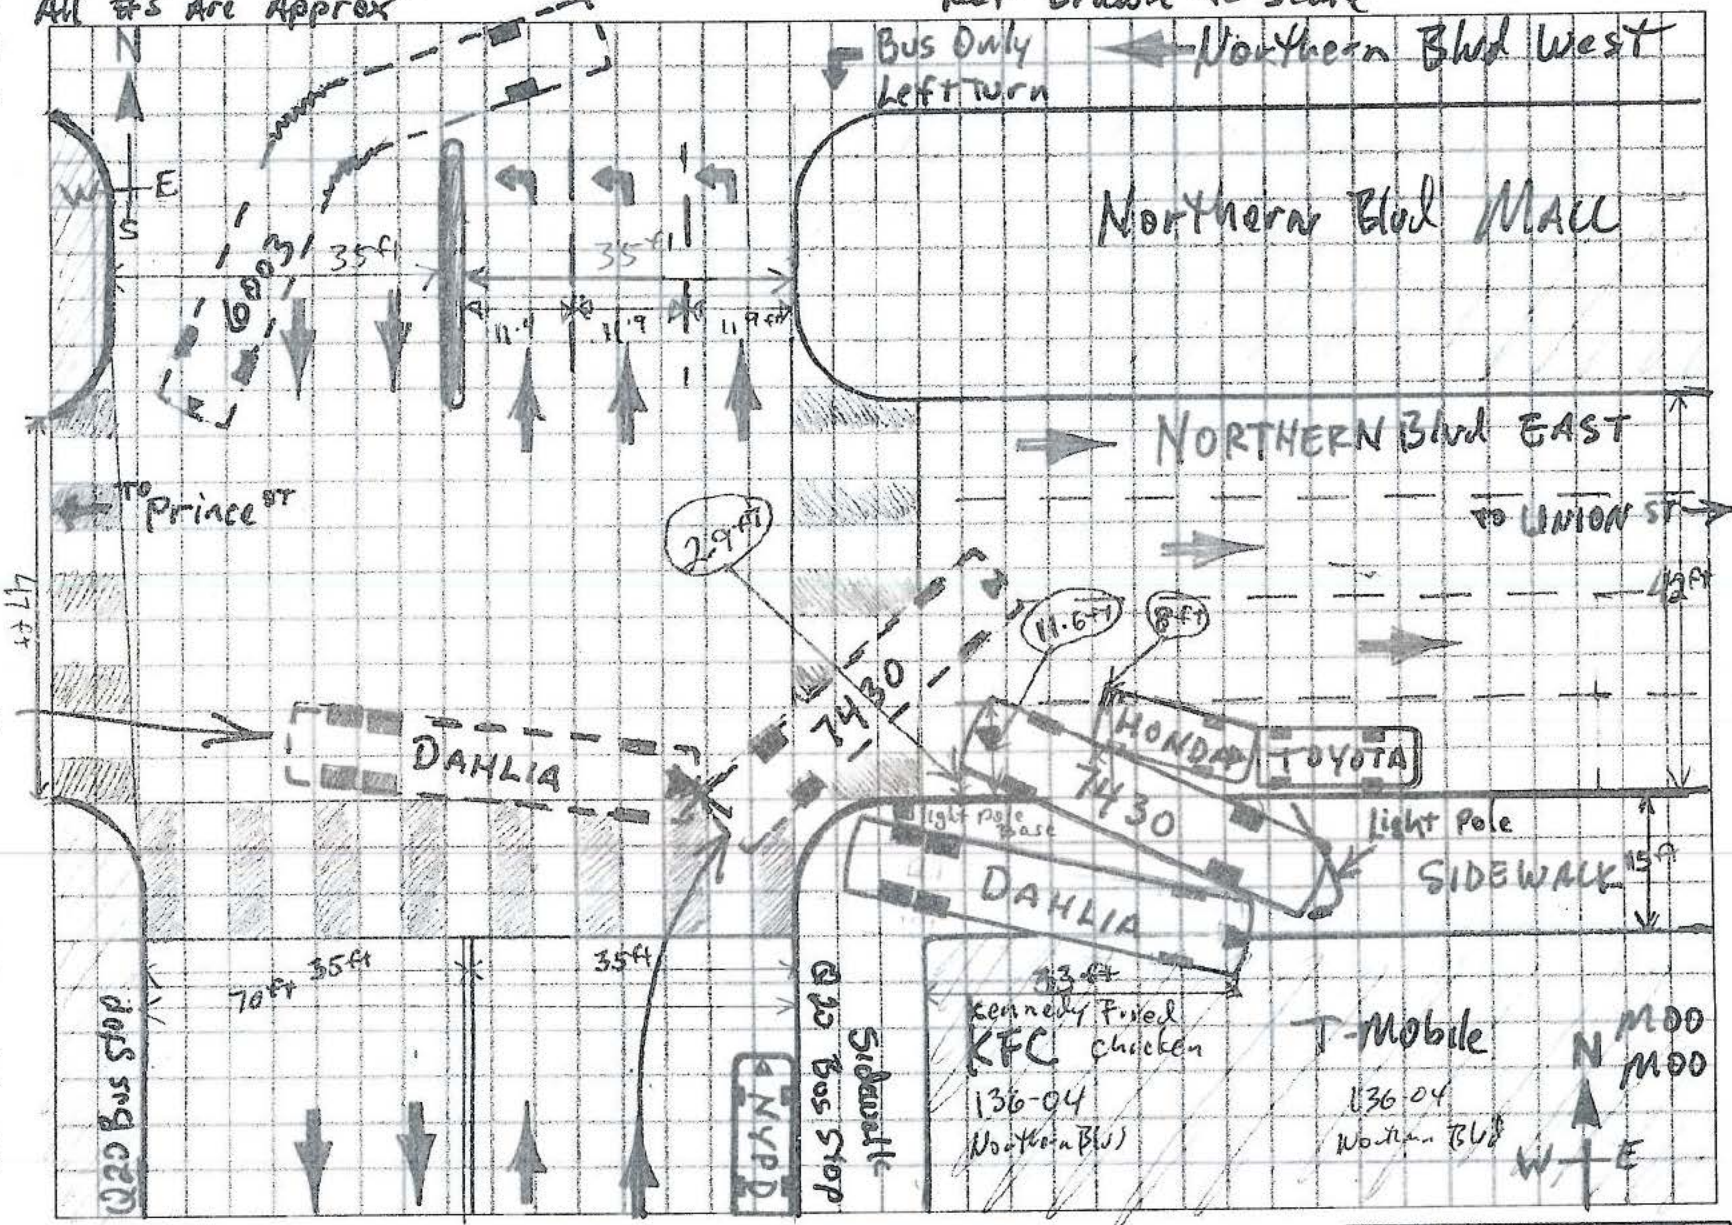 All #s Are Approx
Not Drawn to Scale
N
W E
S
Bus Only
Left Turn
Northern Blvd West
Northern Blvd MALL
6003
35ft
35ft
11.9
11.9
11.9 ft
NORTHERN Blvd EAST
TO Prince ST
TO UNION ST
47 ft
42ft
2.9 ft
11.6 ft
8 ft
7430
DAHLIA
HONDA
TOYOTA
7430
light Pole
Base
light Pole
DAHLIA
SIDEWALK
15 ft
35ft
35ft
70ft
33 ft
Q20 Bus Stop
Q20 Bus Stop
Sidewalk
NYPD
Kennedy Fried
KFC chicken
136-04
Northern Blvd
T-Mobile
136 04
Northern Blvd
MOO
MOO
N
W E